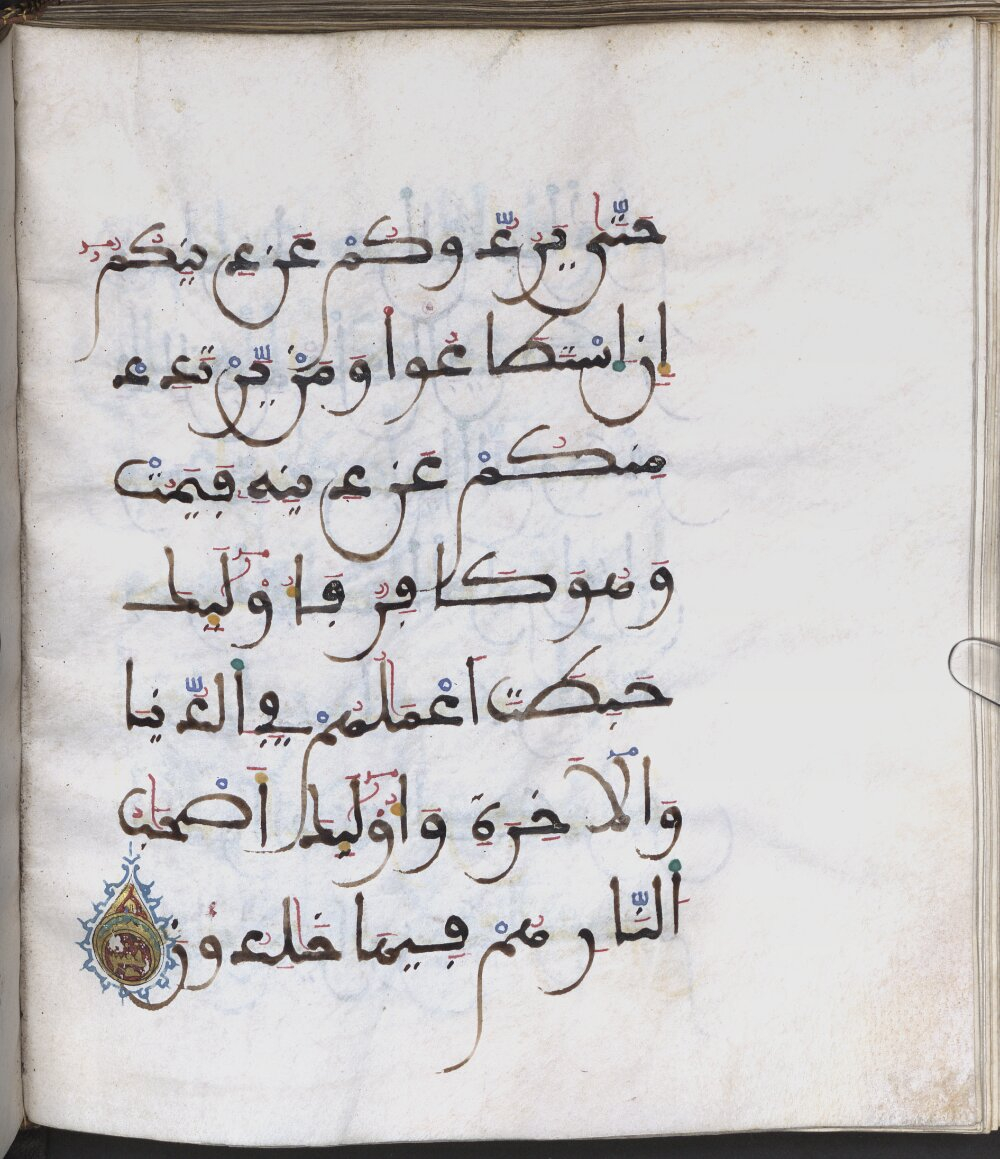 حَتَّىٰ يَرُدُّوكُمْ عَن دِينِكُمُۥٓ
إِنِ اِسْتَطَٰعُواْ وَمَنْ يَّرْتَدِدْ
مِنكُمْ عَن دِينِهِۦ فَيَمُتْ
وَهُوَ كَافِرٌ فَأُوْلَٰٓئِكَ
حَبِطَتَ اَعْمَٰلُهُمْ فِي اِ۬لدُّنْيَا
وَالْأٓخِرَةِ وَأُوْلَٰٓئِكَ أَصْحَٰبُ
اُ۬لنَّارِ هُمْ فِيهَا خَٰلِدُونَ